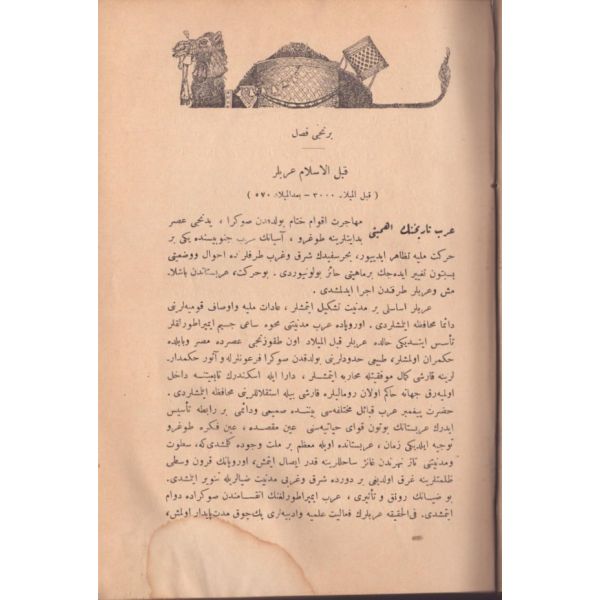 برنجی فصل
قبل الاسلام عربلر
( قبل المیلاد ٣٠٠٠ – بعدالمیلاد ٥٧٠ )
عرب تاریخنك اهمیتی مهاجرت اقوام ختام بولدقدن صوكرا ، یدنجی عصر
بدایتلرینه طوغرو ، آسیانك غرب جنوبیسنده یكی بر
حركت ملیه تظاهر ایدییور، بحرسفیدك شرق وغرب طرفلرنده احوال ووضعیتی
بسبتون تغییر ایده‌جك برماهیتی حائز بولونیوردی . بوحركت، عربستاندن باشلا-
مش وعربلر طرفندن اجرا ایدلمشدی .
عربلر اساسلی بر مدنیت تشكیل ایتمشلر ، عادات ملیه واوصاف قومیه‌لرینی
دائما محافظه ایتمشلردی . اوروپاده عرب مدنیتنی محوه ساعی جسیم ایمپراطورلقلر
تأسس ایتمدیكی حالده عربلر قبل المیلاد اون طقوزنجی عصرده مصر وبابلده
حكمران اولمشلر، طبیعی حدودلرینی بولدقدن صوكرا فرعونلرله وآثور حكمدار-
لرینه قارشی كمال موفقیتله محاربه ایتمشلر ، دارا ایله اسكندرك تابعیتنه داخل
اولمیه‌رق جهانه حاكم اولان رومالیلره قارشی بیله استقلاللرینی محافظه ایتمشلردی .
حضرت پیغمبر عرب قبائل مختلفه‌سی بیننده صمیمی ودائمی بر رابطه تأسیس
ایدرك عربستانك بوتون قوای حیاتیه‌سنی عین مقصده ، عین فكره طوغرو
توجیه ایلدیكی زمان ، عربستانده اویله معظم بر ملت وجوده كلمشدی‌كه، سطوت
ومدنیتنی تاژ نهرندن غانژ ساحللرینه قدر ایصال ایتمش، اوروپانك قرون وسطی
ظلمتلرینه غرق اولدیغی بر دورده شرق وغربی مدنیت ضیالریله تنویر ایتمشدی.
بو ضیانك رونق و تأثیری ، عرب ایمپراطورلغنك انقسامندن صوكراده دوام
ایتمشدی. فی‌الحقیقه عربلرك فعالیت علمیه وادبیه‌لری پك‌چوق مدت‌پایدار اولمش،